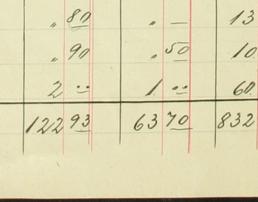 " 80 " — 13
" 90 " 50 10
2 .. 1 .. 60
122 93 63 70 832